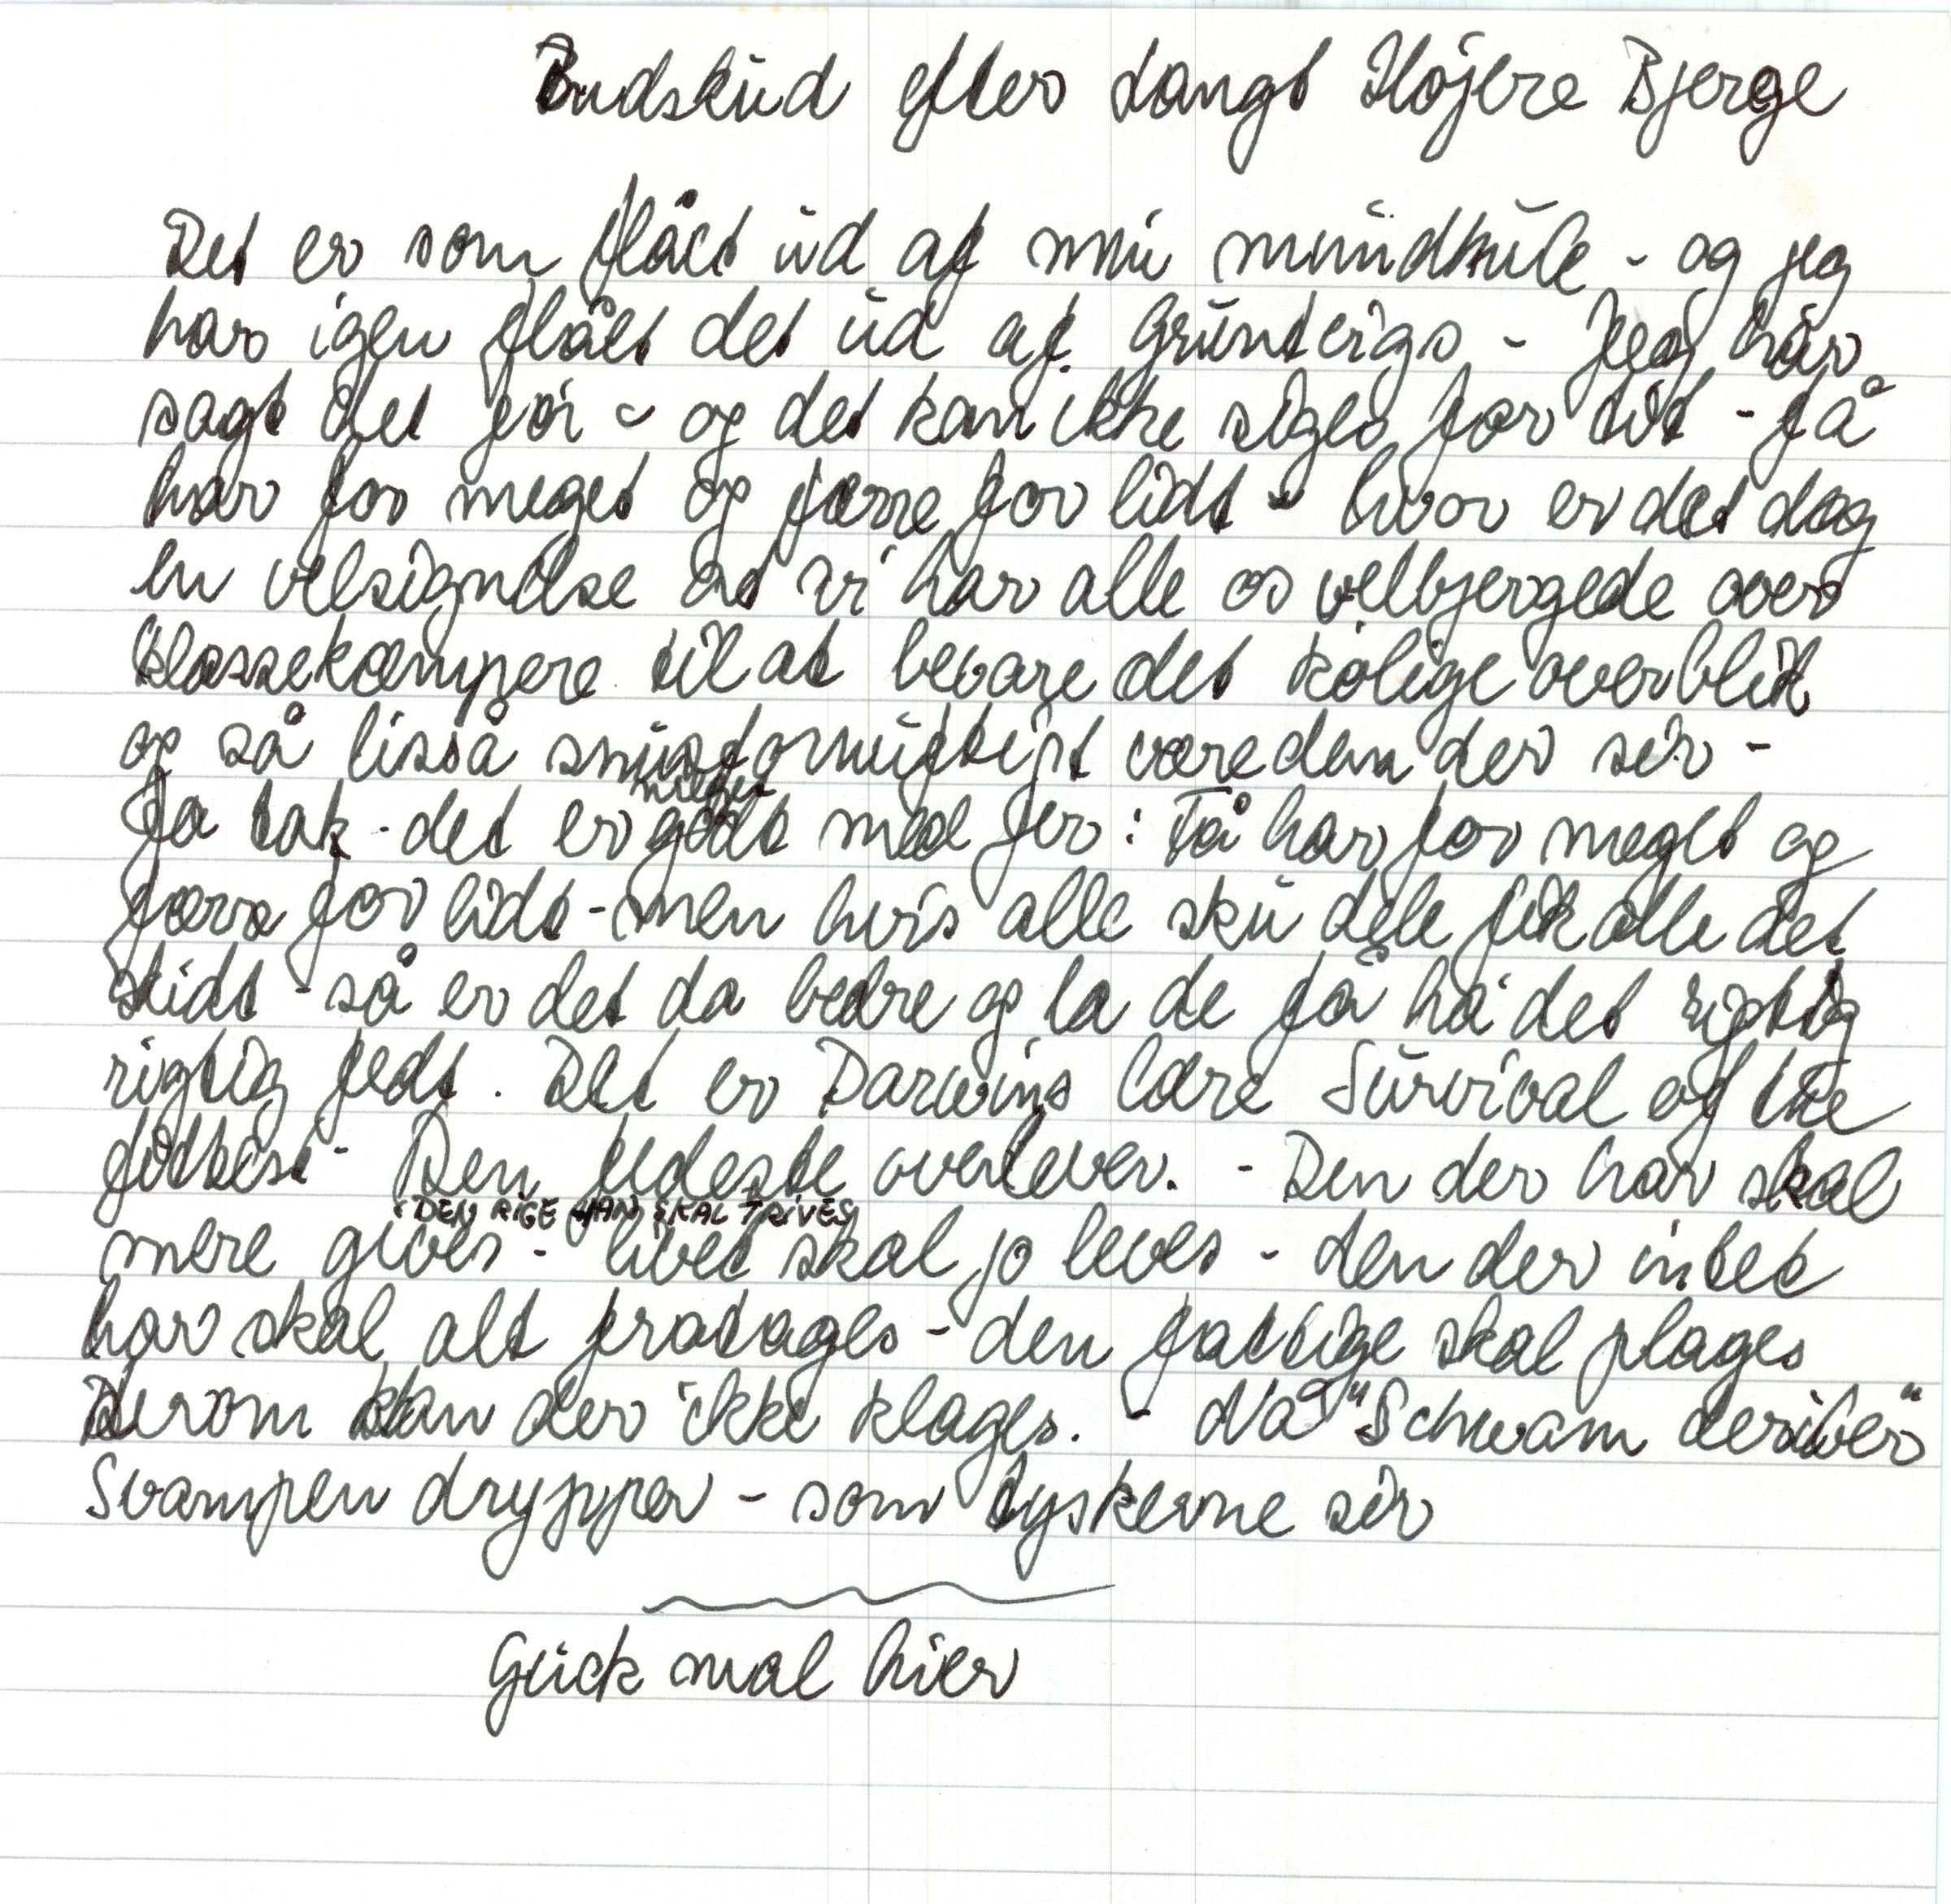 Indskud efter Langt Højere Bjerge
Det er som flået ud af min mundhule - og jeg
har igen flået det ud af Grundtvigs - Jeg har
sagt det før - og det kan ikke siges for tit - få
har for meget og færre for lidt - hvor er det dog
en velsignelse at vi har alle os velbjergede over
klassekæmpere til at bevare det kølige overblik
og så lisså snusfornuftigt være dem der sir -
meget
Ja tak - det er godt med jer : Få har for meget og
færre for lidt - men hvis alle sku dele fik alle det
skidt - så er det da bedre og la de få ha' det rigtig
rigtig fedt. Det er Darwins lære Survival of the
fittest - Den fedeste overlever. - Den der har skal
: DEN RIGE MAN SKAL TRIVES
mere gives - livet skal jo leves - den der intet
har skal alt fratages - den fattige skal plages
Derom kan der ikke klages. - Nå "Schwam derüber"
Svampen drypper - som tyskerne sir
Guck mal hier